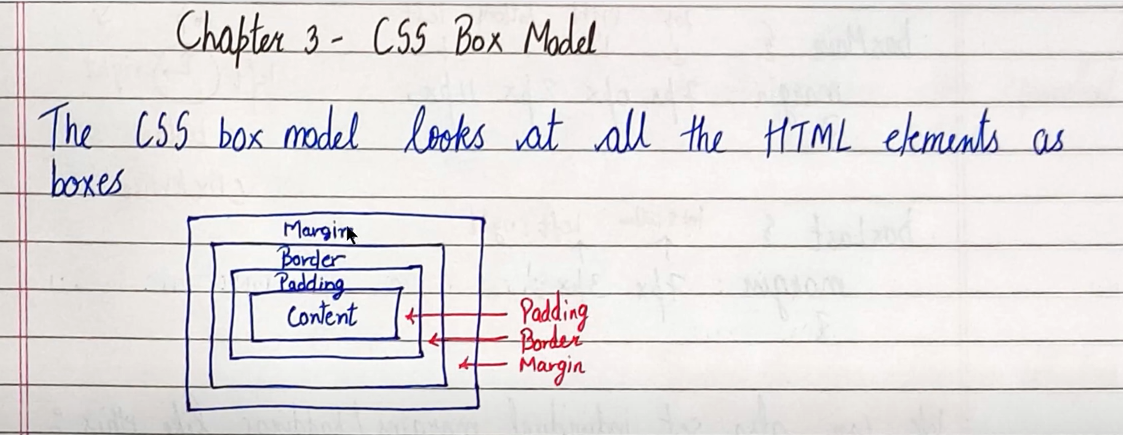 Chapter 3 - CSS Box Model
The CSS box model looks at all the HTML elements as
boxes
Margin
Border
Padding
Content
Padding
Border
Margin